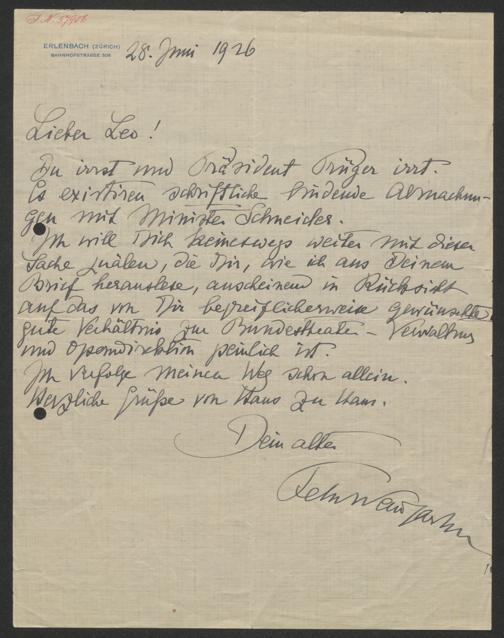 I.N. 57906
ERLENBACH (ZÜRICH)
BAHNHOFSTRASSE 306
28. Juni 1926
Lieber Leo!
Du irrst und Präsident Prüger irrt.
Es existiren schriftliche bindende Abmachun-
gen mit Minister Schneider.
Ich will Dich keineswegs weiter mit dieser
Sache quälen, die Dir, wie ich aus Deinem
Brief herauslese, anscheinend in Rücksicht
auf das von Dir begreiflicherweise gewünschte
gute Verhältnis zur Bundestheater-Verwaltung
und Operndirektion peinlich ist.
Ich verfolge meinen Weg schon allein.
Herzliche Grüße von Haus zu Haus.
Dein alter
Felix Weingartner